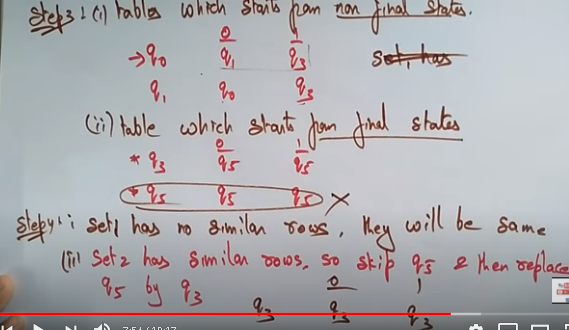 Step3: (i) tables which starts from non final states.
0 1
→q0 q1 q3 set, has
q1 q0 q3
(ii) table which starts from final states
0 1
* q3 q5 q5
* q5 q5 q5 X
Step4: set1 has no similar rows, they will be same
(ii) Set2 has similar rows, so skip q5 & then replace
q5 by q3 0 1
q3 q3 q3